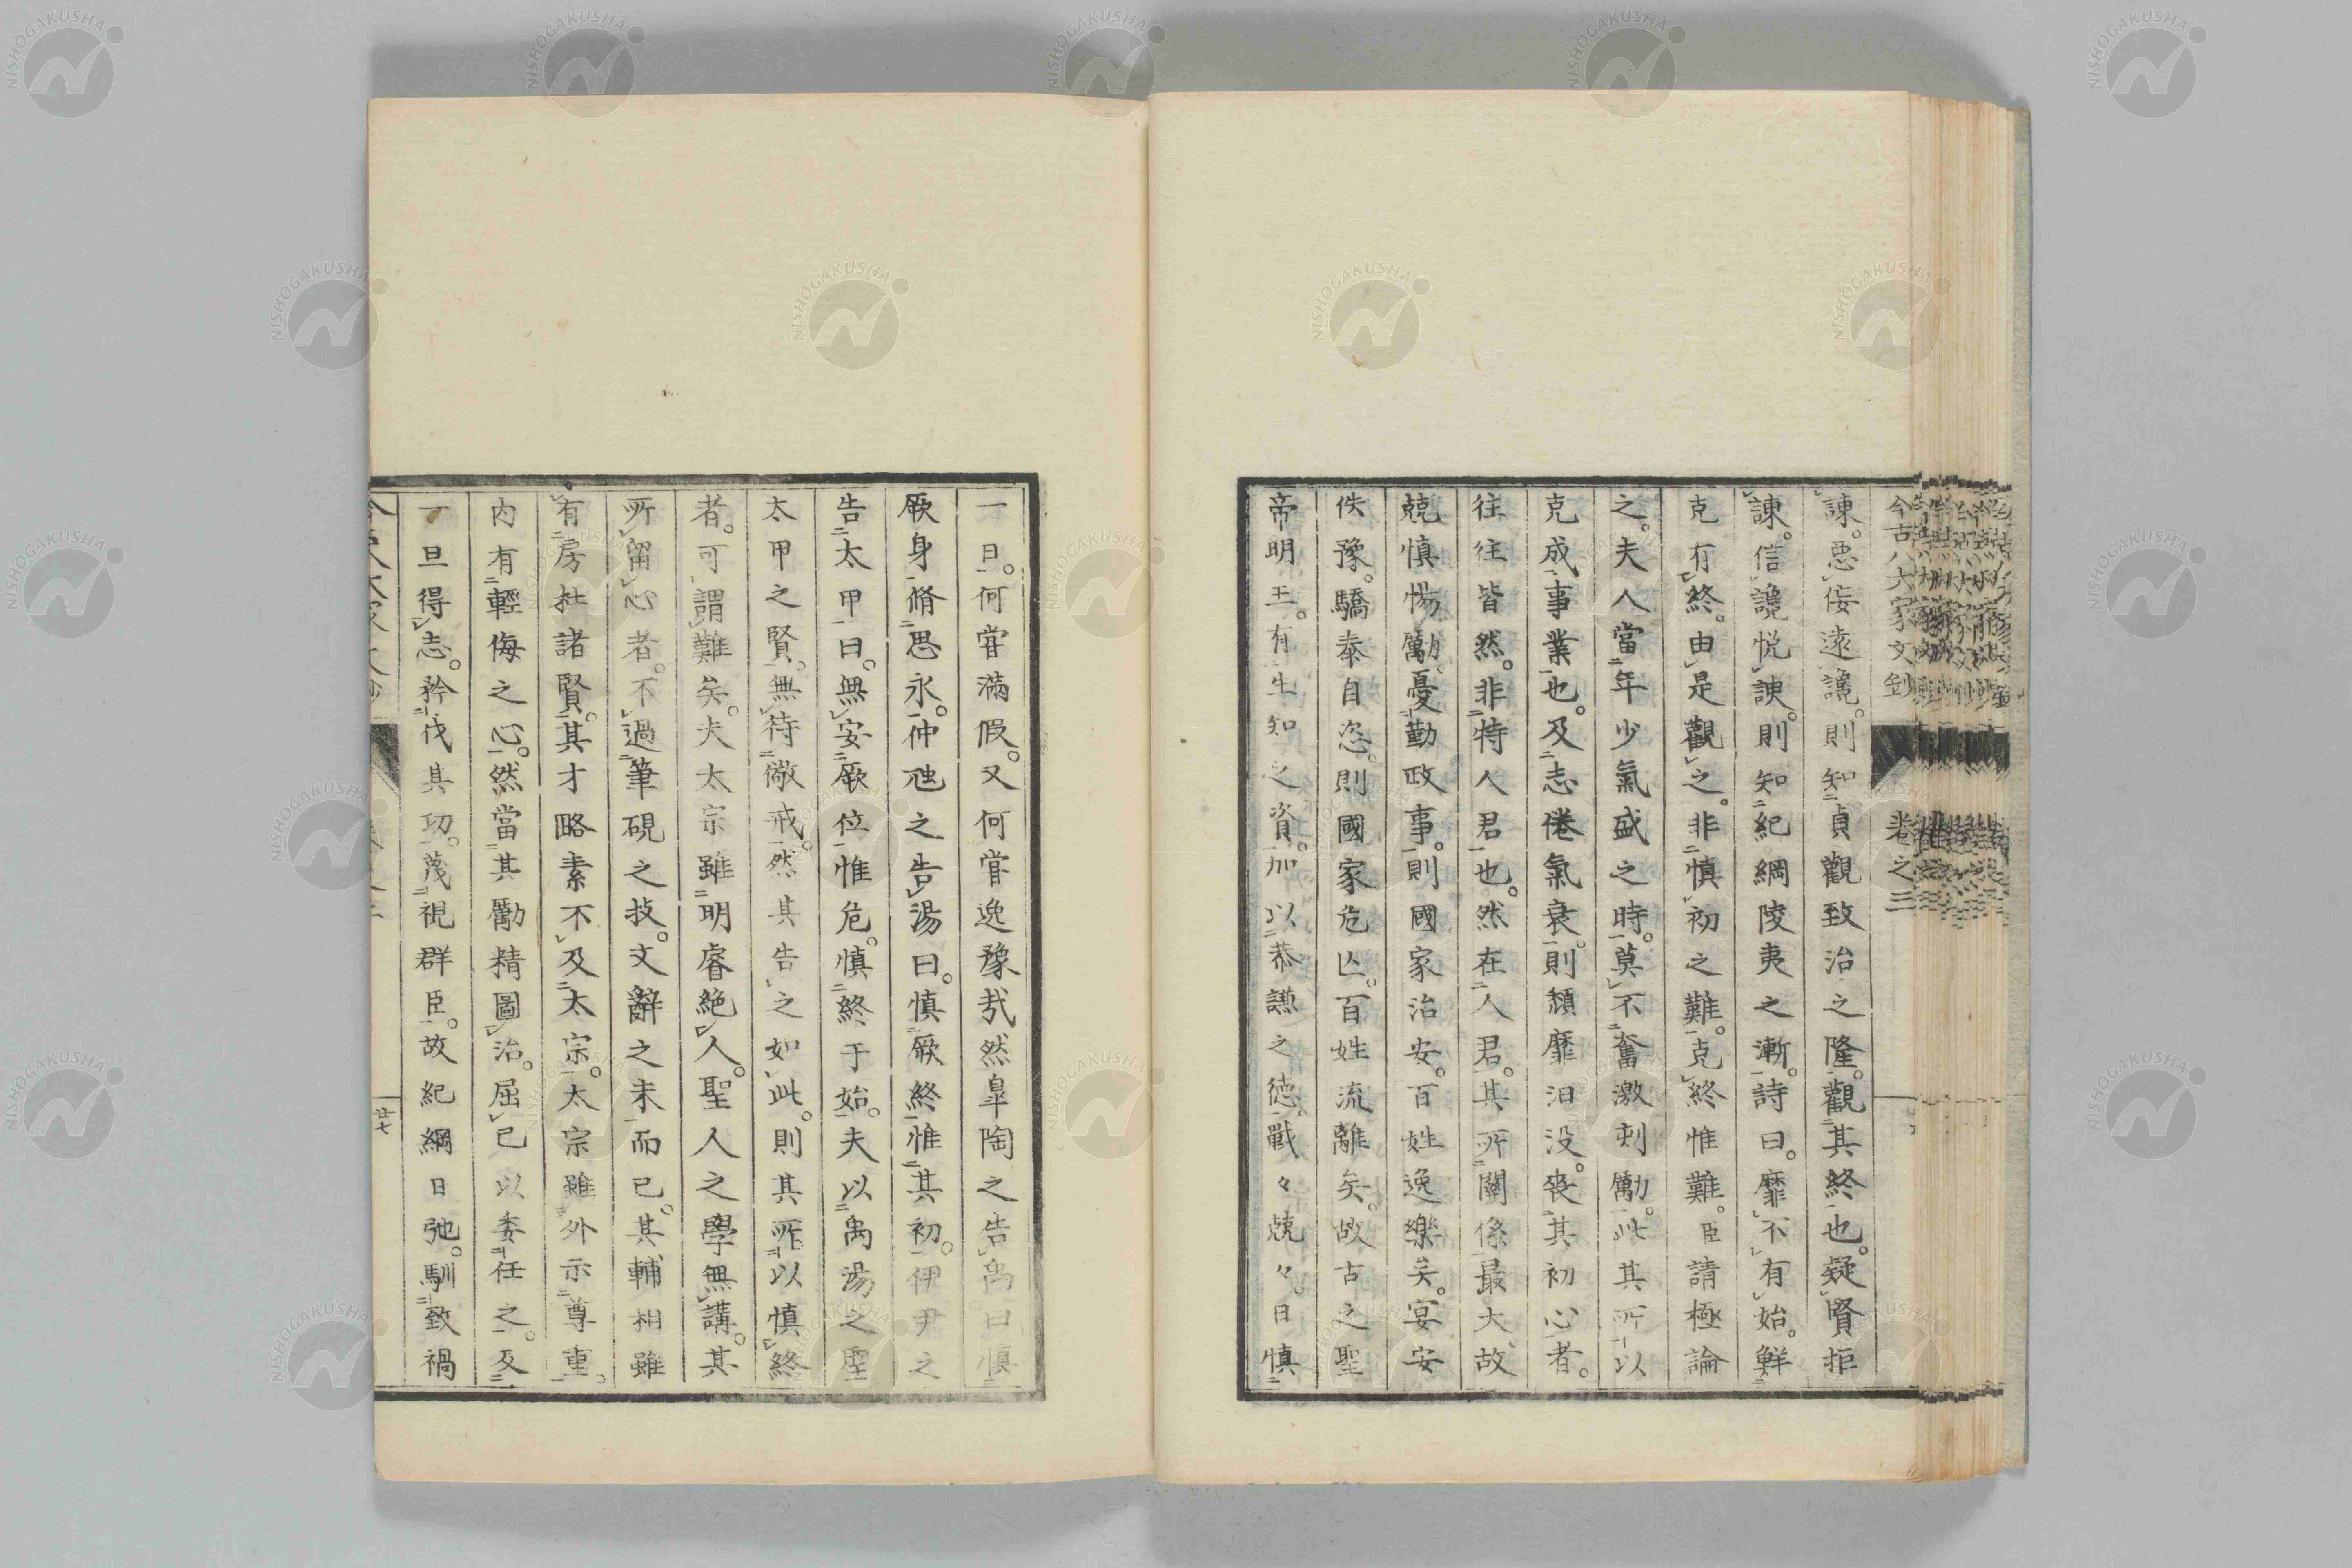 今古八大家文鈔 卷之三
諫。惡佞遠讒。則知貞觀致治之隆。觀其終也。疑賢拒
諫。信讒悅諛。則知紀綱陵夷之漸。詩曰。靡不有始。鮮
克有終。由是觀之。非慎初之難。克終惟難。臣請極論
之。夫人當年少氣盛之時。莫不奮激刺勵。此其所以
克成事業也。及志倦氣衰。則頹靡汨没。喪其初心者。
往往皆然。非特人君也。然在人君。其所關係最大。故
兢慎惕勵憂勤政事。則國家治安。百姓逸樂矣。宴安
佚豫。驕泰自恣。則國家危亾。百姓流離矣。故古之聖
帝明王。有生知之資。加以恭謙之德。戰々兢々。日慎
一日。何甞滿假。又何甞逸豫哉然皐陶之告禹曰。慎
厥身脩思永。仲虺之告湯曰。慎厥終惟其初。伊尹之
告太甲曰。無安厥位惟危。慎終于始。夫以禹湯之聖
太甲之賢。無待儆戒。然其告之如此。則其所以慎終
者。可謂難矣。夫太宗雖明睿絶人。聖人之學無講。其
所留心者。不過筆硯之技。文辭之末而已。其輔相雖
有房杜諸賢。其才略素不及太宗。太宗雖外示尊重。
内有輕侮之心。然當其勵精圖治。屈己以委任之。及
一旦得志。矜伐其功。蔑視群臣。故紀綱日弛。馴致禍
廿七
NISHOGAKUSHA